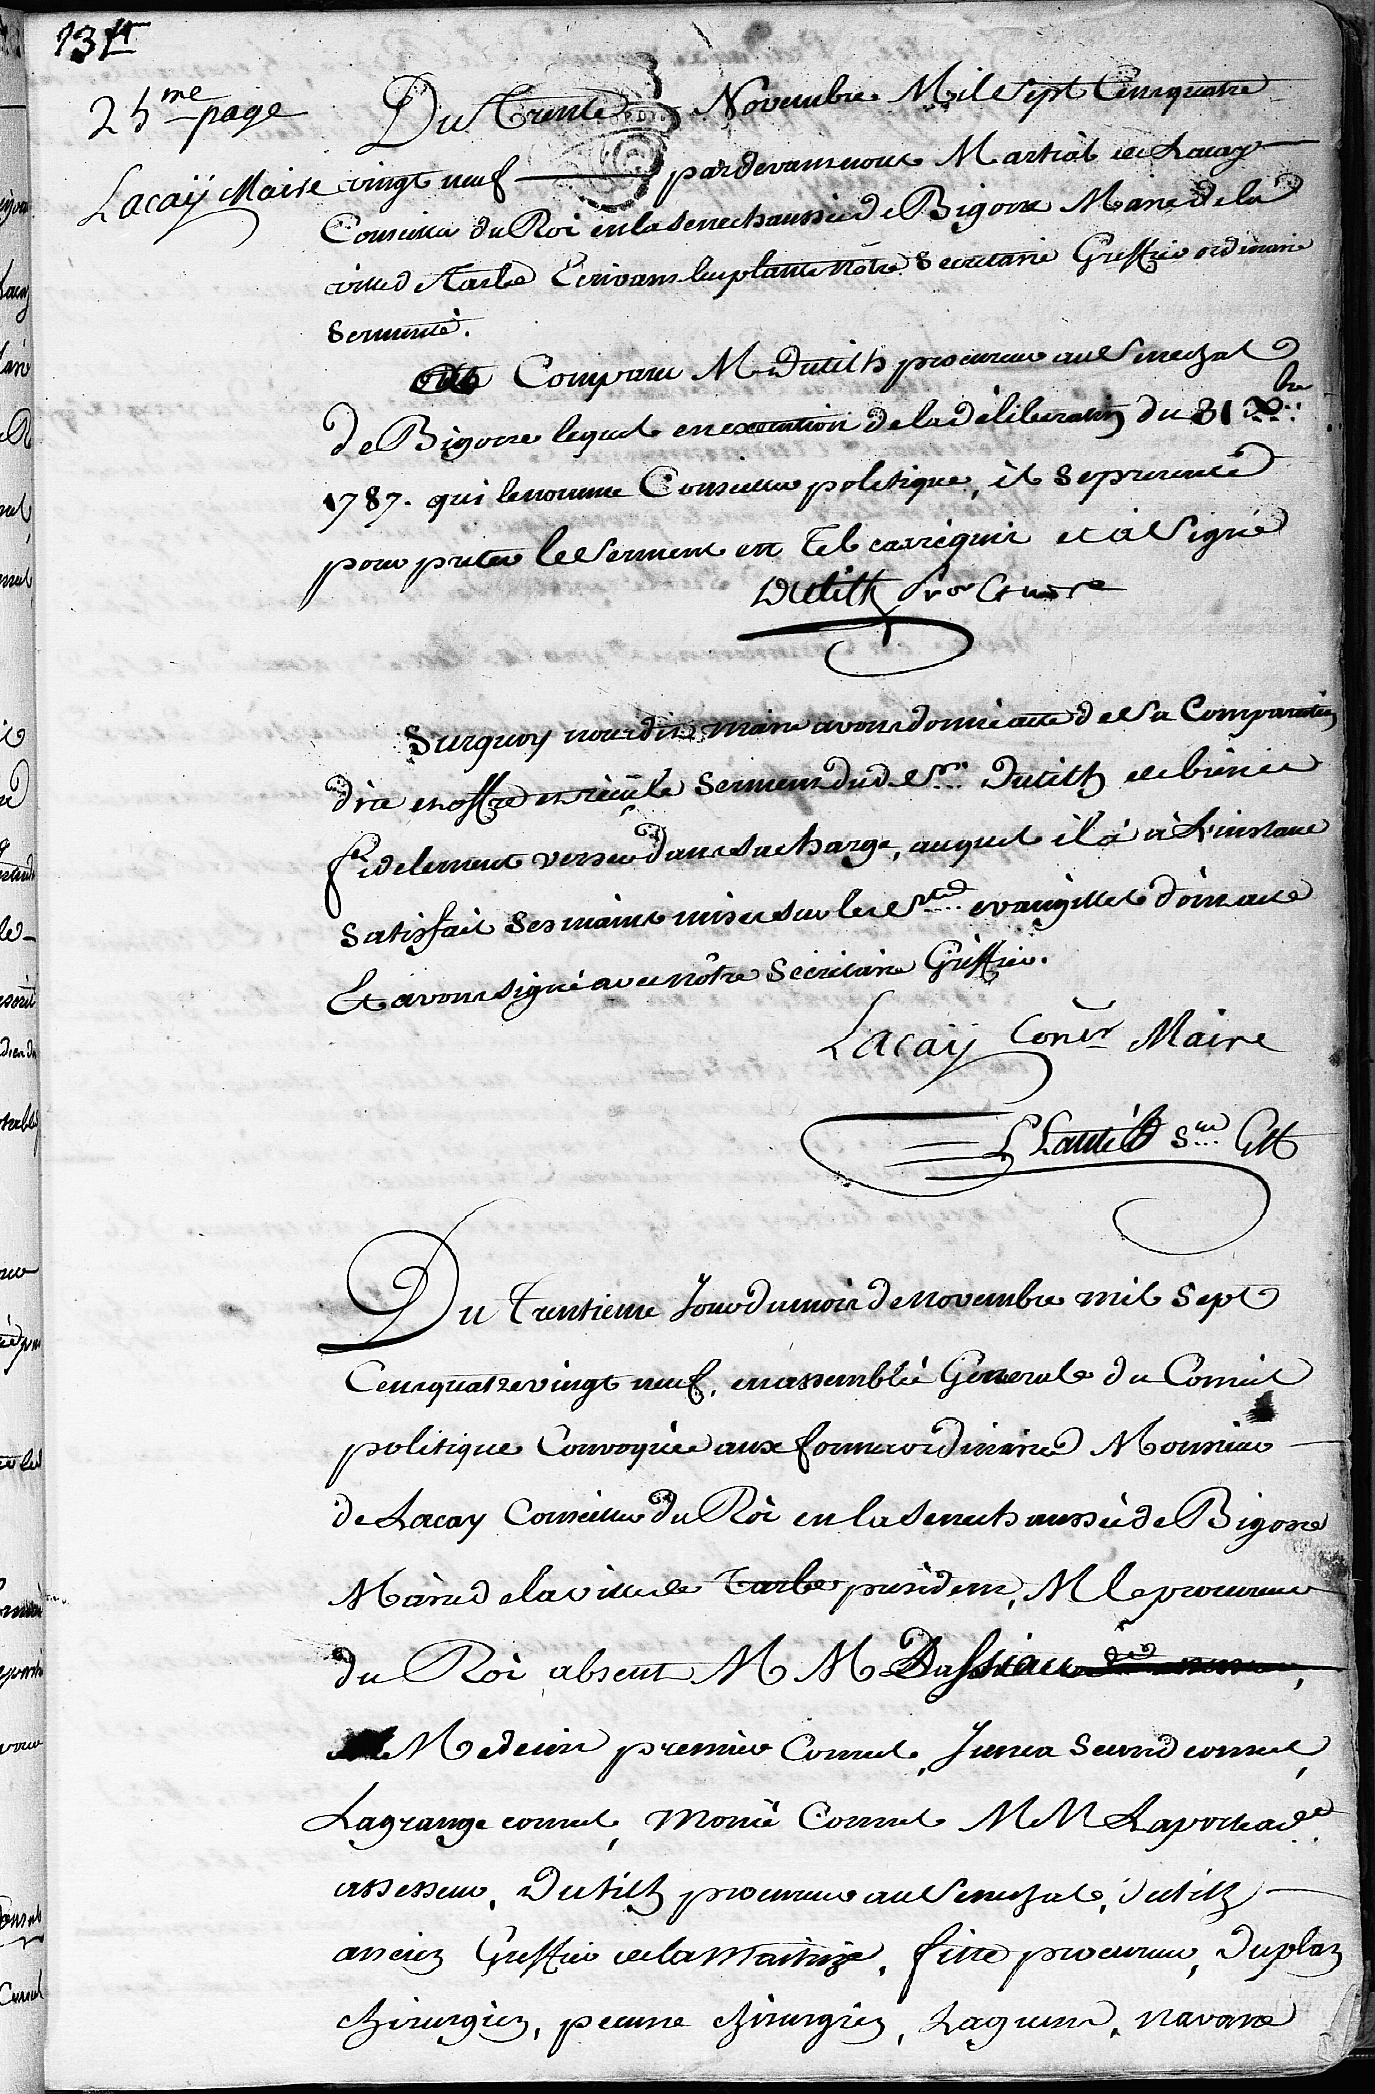 25me page
Lacaÿ Maire
Du Trente Novembre Mil Sept Cent quatre
vingt neuf pardevant nous Martial de Lacay
Conseiller du Roi en la senechaussée de Bigorre Maire de la
ville de Tarbe Ecrivant sous notre Secretaire Greffier ordinaire
sermenté.
Comparu M Dutilh procureur au Senechal
de Bigorre lequel en execution de la déliberation du 31 Xbre
1787. qui le nomme Conseiller politique, il se presente
pour preter le Serment en tel cas requis et a Signé
Dutilh
Surquoy nous dit maire avons donné acte de sa Comparution
dire et offre et reçu le serment dud. Sr. Dutilh de bien et
fidelement verser dans sa charge, auquel il a à L'instant
satisfait ses mains mises sur les Sts evangilles d'on acte
Et avons signé avec nôtre Sécrétaire Greffier.
Lacaÿ Conser Maire
Du Trentieme Jour du mois de novembre mil Sept
Cent quatre vingt neuf, en assemblée Generale du Conseil
politique Convoquée aux formes ordinaires Monsieur
de Lacay Conseiller du Roi en la Senechaussée de Bigorre
Maire de la ville de Tarbe president, M le procureur
du Roi absent M M
Medecin premier Consul, Junca second consul,
Lagrange consul, Monié Consul M M Laporte
assesseur, Dutilh procureur au Senechal, Dutilh
ancien Greffier de la Maitrise, fitte procureur, Duplan
chirurgien, peyune chirurgien, Laguens, navarre